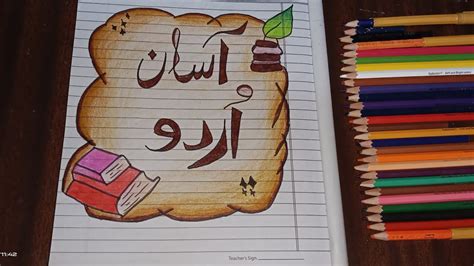 آسان
اُردو
Teacher's Sign
11:42